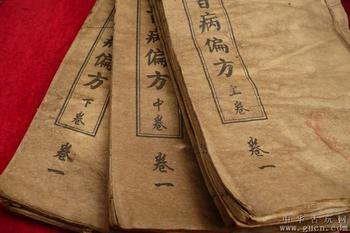 百病偏方
上卷
卷一
病偏方
中卷
卷一
偏方
下卷
卷一
中华古玩网
www.gucn.com